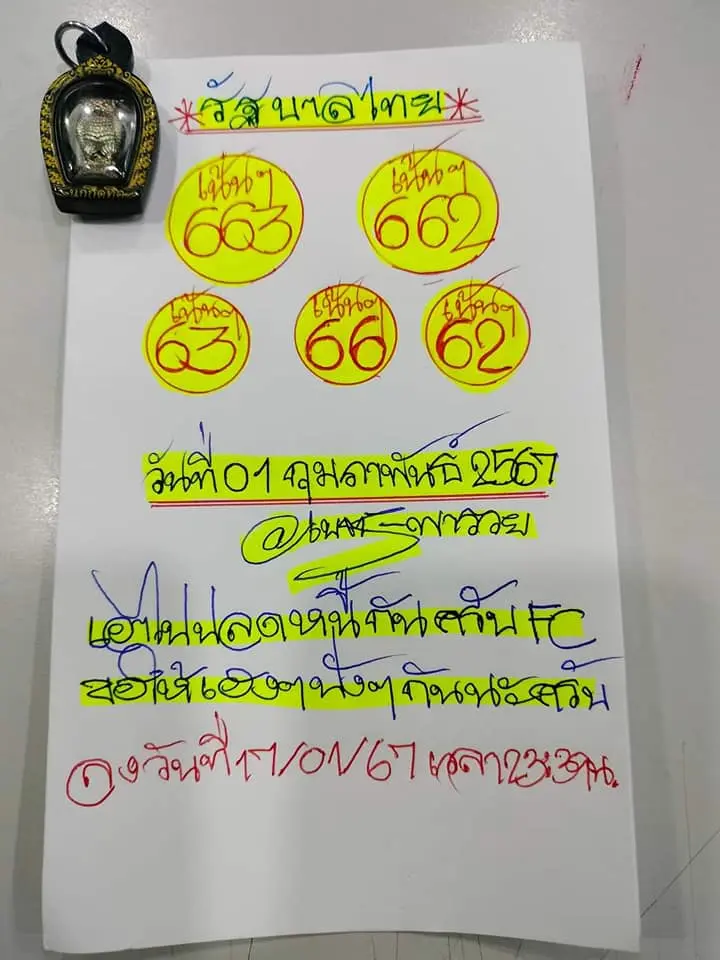 *รัฐบาลไทย*
เน้นๆ เน้นๆ
663 662
เน้นๆ เน้นๆ เน้นๆ
63 66 62
วันที่ 01 กุมภาพันธ์ 2567
@เพชรพารวย
เอาไปปลดหนี้กันครับ FC
ขอให้เฮงๆปังๆกันนะครับ
ลงวันที่ 17/01/67 เวลา 23:39น.